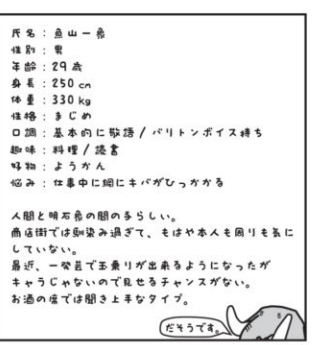 氏名：魚山一象
性別：男
年齢：29歳
身長：250cm
体重：330kg
性格：まじめ
口調：基本的に敬語/バリトンボイス持ち
趣味：料理/読書
好物：ようかん
悩み：仕事中に網にキバがひっかかる
人間と明石象の間の子らしい。
商店街では馴染み過ぎて、もはや本人も周りも気に
していない。
最近、一発芸で玉乗りが出来るようになったが
キャラじゃないので見せるチャンスがない。
お酒の席では聞き上手なタイプ。
だそうです。